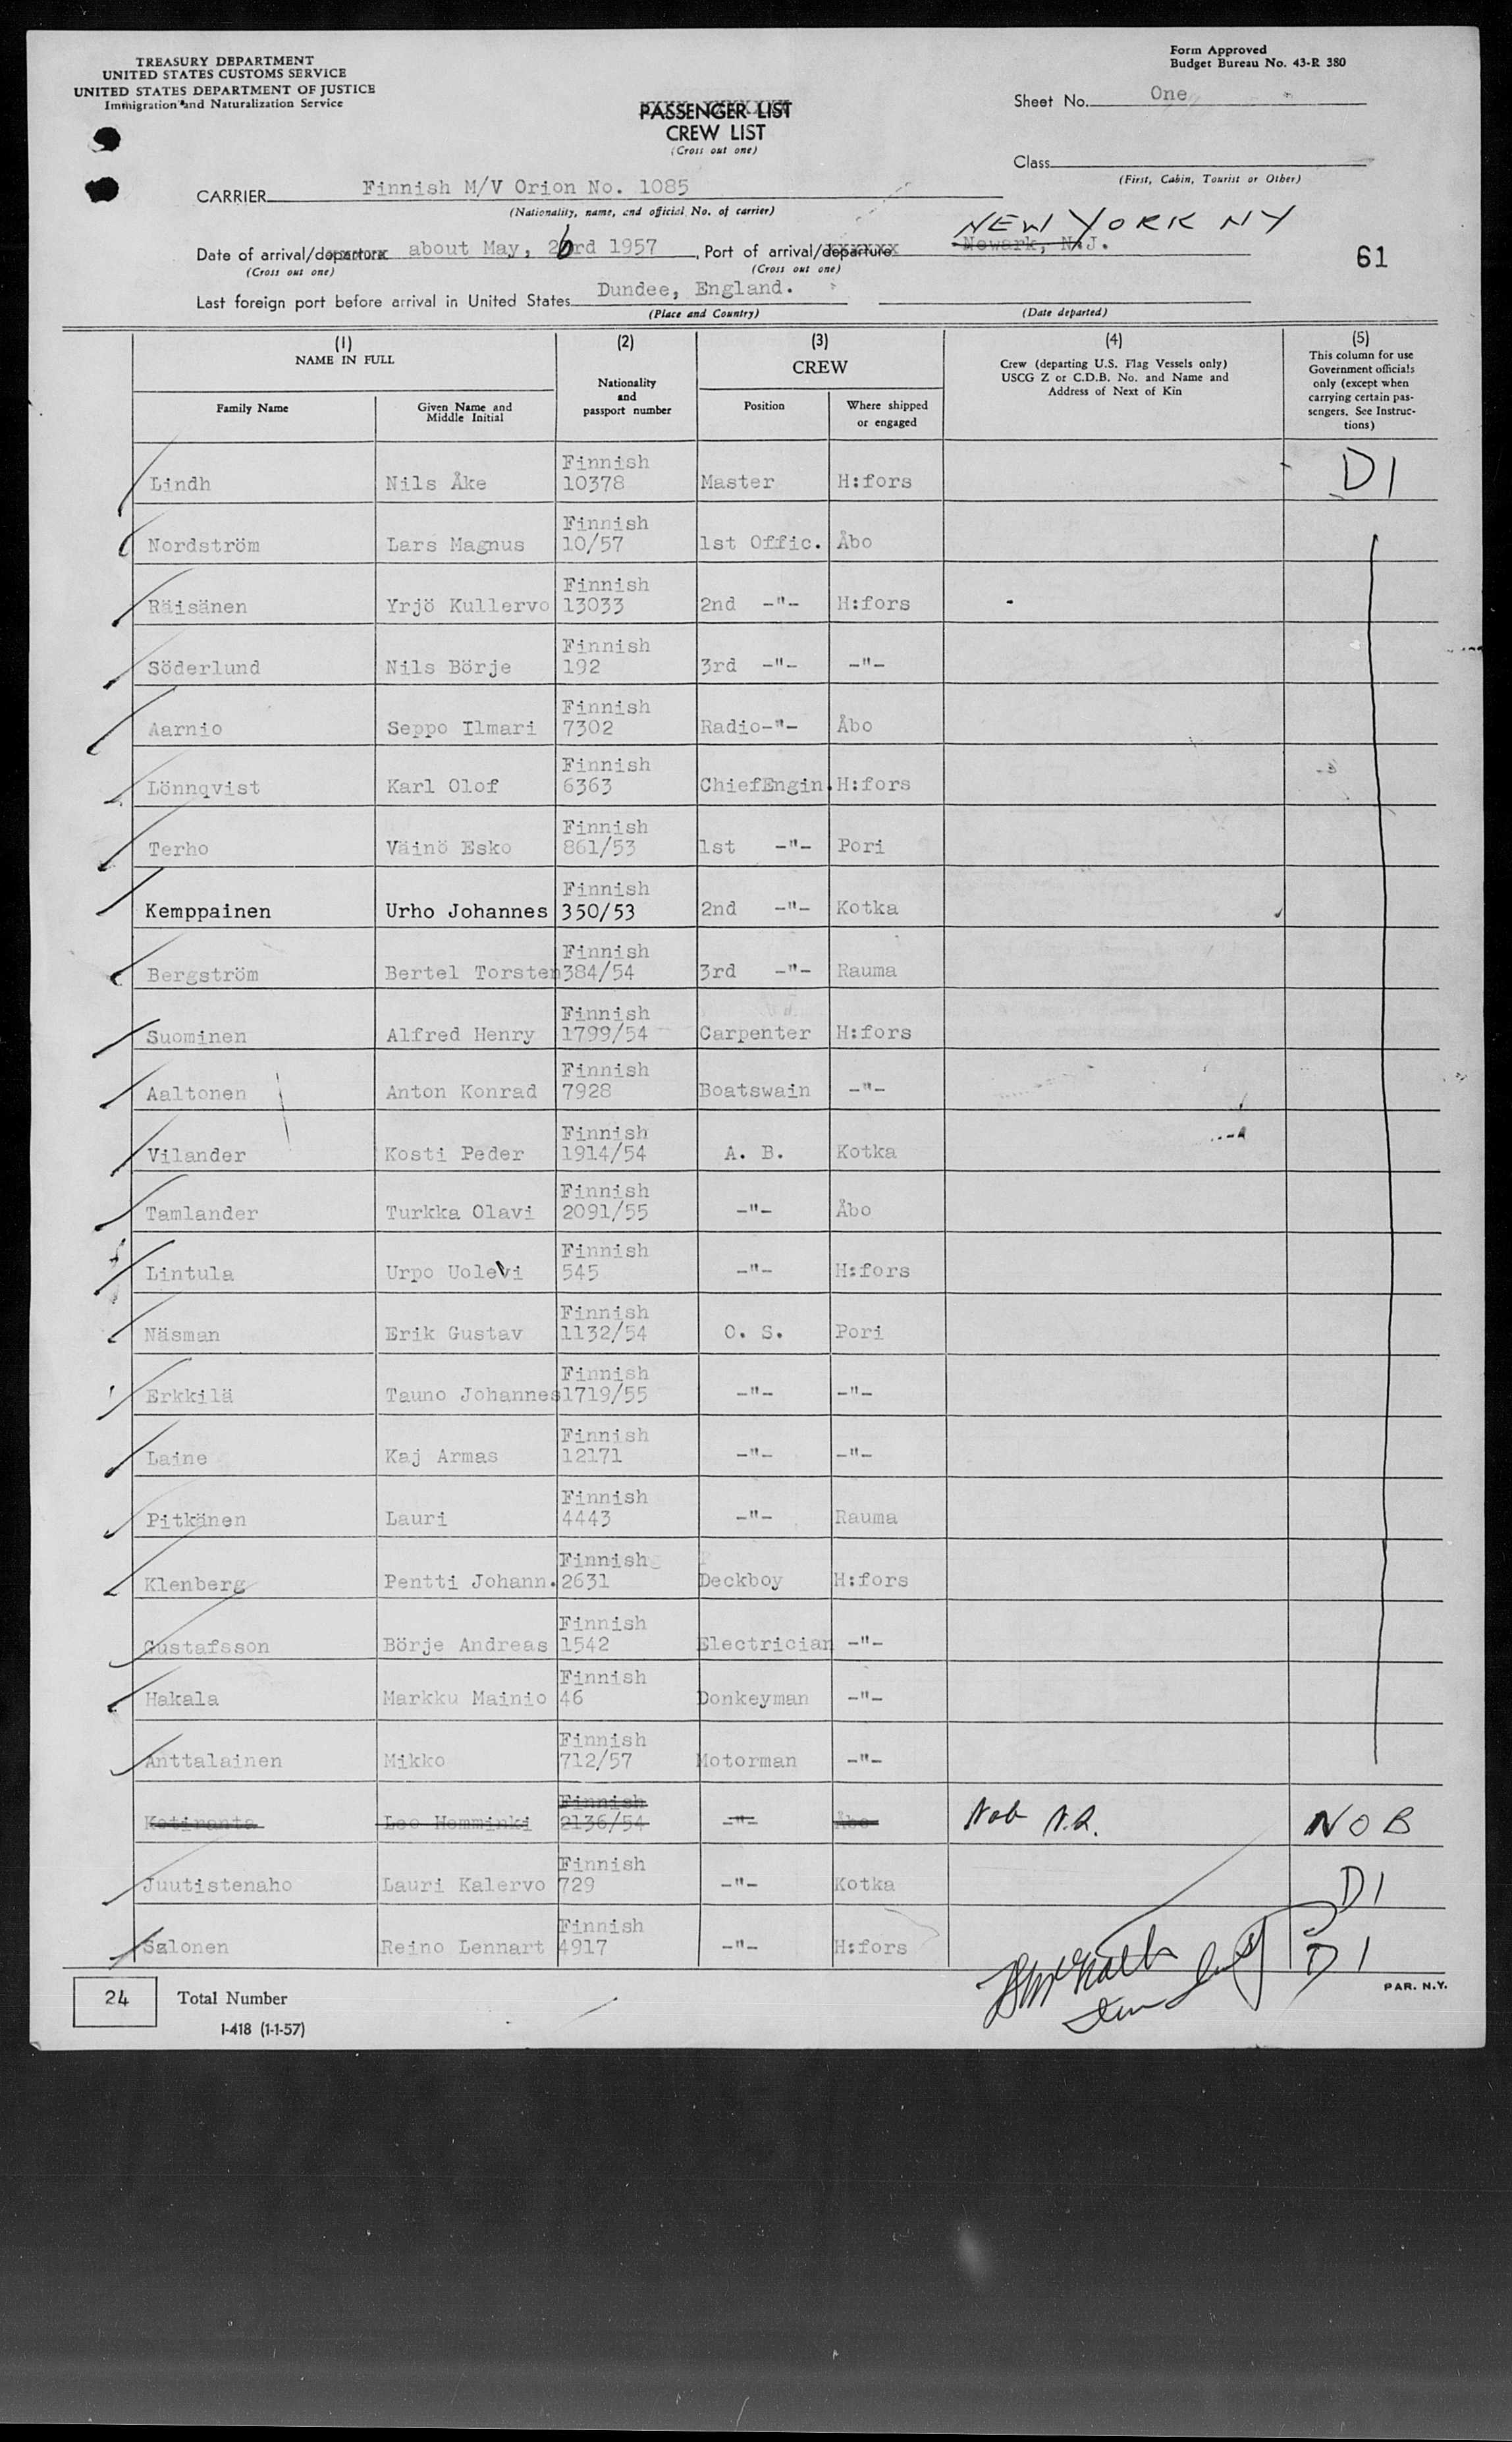 TREASURY DEPARTMENT
UNITED STATES CUSTOMS SERVICE
UNITED STATES DEPARTMENT OF JUSTICE
Immigration and Naturalization Service
Form Approved
Budget Bureau No. 43-R 380
PASSENGER LIST
CREW LIST
(Cross out one)
Sheet No. One
Class
(First, Cabin, Tourist or Other)
CARRIER Finnish M/V Orion No. 1085
(Nationality, name, and official No. of carrier)
NEW YORK NY
Date of arrival/departure about May, 26rd 1957, Port of arrival/departure Newark, N.J.
(Cross out one) (Cross out one)
61
Last foreign port before arrival in United States Dundee, England.
(Place and Country) (Date departed)
(1) NAME IN FULL
Family Name
Given Name and Middle Initial
(2) Nationality and passport number
(3) CREW
Position
Where shipped or engaged
(4) Crew (departing U.S. Flag Vessels only) USCG Z or C.D.B. No. and Name and Address of Next of Kin
(5) This column for use Government officials only (except when carrying certain passengers. See Instructions)
Lindh Nils Åke Finnish 10378 Master H:fors D1
Nordström Lars Magnus Finnish 10/57 1st Offic. Åbo
Räisänen Yrjö Kullervo Finnish 13033 2nd -"- H:fors
Söderlund Nils Börje Finnish 192 3rd -"- -"-
Aarnio Seppo Ilmari Finnish 7302 Radio-"- Åbo
Lönnqvist Karl Olof Finnish 6363 ChiefEngin. H:fors
Terho Väinö Esko Finnish 861/53 1st -"- Pori
Kemppainen Urho Johannes Finnish 350/53 2nd -"- Kotka
Bergström Bertel Torsten Finnish 384/54 3rd -"- Rauma
Suominen Alfred Henry Finnish 1799/54 Carpenter H:fors
Aaltonen Anton Konrad Finnish 7928 Boatswain -"-
Vilander Kosti Peder Finnish 1914/54 A. B. Kotka
Tamlander Turkka Olavi Finnish 2091/55 -"- Åbo
Lintula Urpo Uolevi Finnish 545 -"- H:fors
Näsman Erik Gustav Finnish 1132/54 O. S. Pori
Erkkilä Tauno Johannes Finnish 1719/55 -"- -"-
Laine Kaj Armas Finnish 12171 -"- -"-
Pitkänen Lauri Finnish 4443 -"- Rauma
Klenberg Pentti Johann. Finnish 2631 Deckboy H:fors
Gustafsson Börje Andreas Finnish 1542 Electrician -"-
Hakala Markku Mainio Finnish 46 Donkeyman -"-
Anttalainen Mikko Finnish 712/57 Motorman -"-
Kotiranta Leo Hemminki Finnish 2136/54 -"- Åbo Nob N.R. NOB
Juutistenaho Lauri Kalervo Finnish 729 -"- Kotka D1
Salonen Reino Lennart Finnish 4917 -"- H:fors D1
24 Total Number
I-418 (1-1-57)
PAR. N.Y.